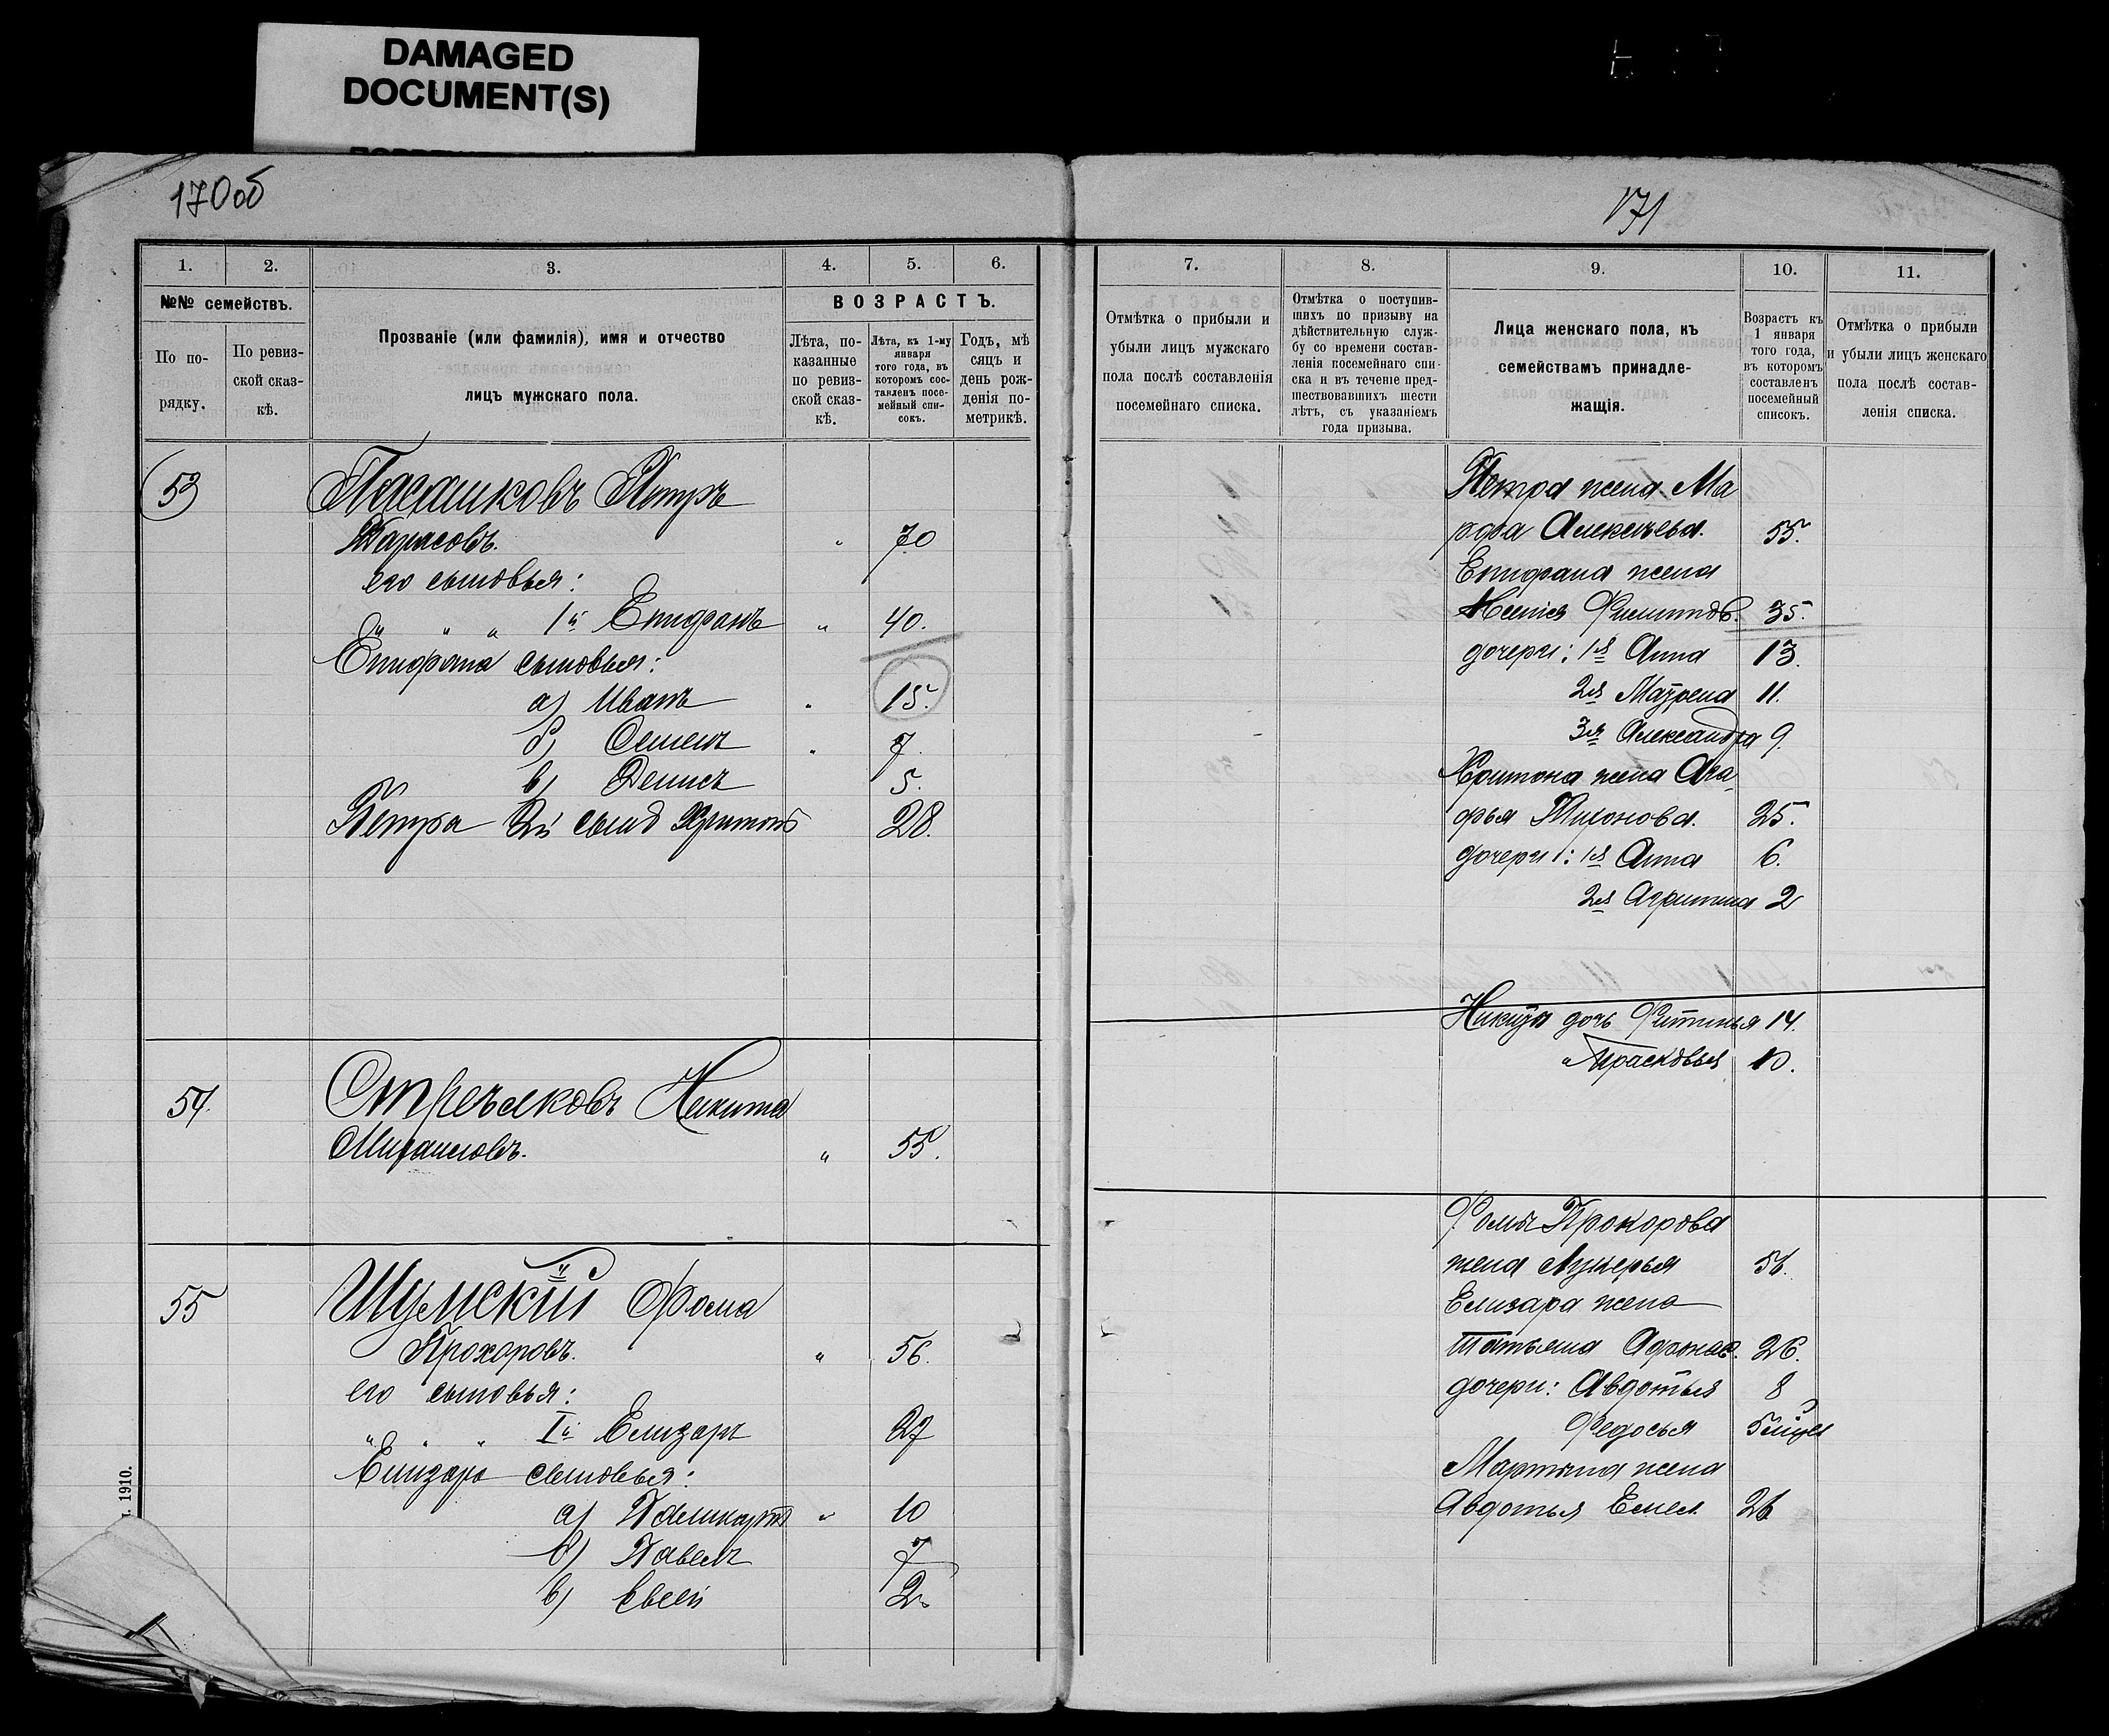 DAMAGED
DOCUMENT(S)
170об
1. 2. 3. 4. 5. 6.
№№ семействъ.
По по-
рядку.
По ревиз-
ской сказ-
кѣ.
Прозваніе (или фамилія), имя и отчество
лицъ мужскаго пола.
ВОЗРАСТЪ.
Лѣта, по-
казанные
по ревиз-
ской сказ-
кѣ.
Лѣта, къ 1-му
января
того года, въ
которомъ сос-
тавленъ посе-
мейный спи-
сокъ.
Годъ, мѣ
сяцъ и
день рож-
денія по-
метрикѣ.
53 Петръ
Тарасовъ. " 70
его сыновья:
" " " 1й Епифанъ " 40.
Епифана сыновья:
а) Иванъ " 15.
б) Семенъ " 7.
в) Денисъ 5.
Петра 2й сынъ Харитонъ 28.
54. Стрелковъ Никита
Михаиловъ. " 55.
55 Шумскій Фома
Прохоровъ. " 56.
его сыновья:
" " " Iй Елизаръ 27
Елизара сыновья:
а) " 10
б) Павелъ 7
в) Евсей 2
1910.
171
7. 8. 9. 10. 11.
Отмѣтка о прибыли и
убыли лицъ мужскаго
пола послѣ составленія
посемейнаго списка.
Отмѣтка о поступив-
шихъ по призыву на
дѣйствительную служ-
бу со времени состав-
ленія посемейнаго спи-
ска и въ теченіе пред-
шествовавшихъ шести
лѣтъ, съ указаніемъ
года призыва.
Лица женскаго пола, къ
семействамъ принадле-
жащія.
Возрастъ къ
1 января
того года,
въ которомъ
составленъ
посемейный
списокъ.
Отмѣтка о прибыли
и убыли лицъ женскаго
пола послѣ состав-
ленія списка.
Петра жена Ма
рфа Алексѣева. 55.
Епифана жена
35.
дочери: 1я Анна 13.
2я Матрена 11.
3я Александра 9.
Харитона жена Ага
фья Тихонова. 25.
дочери: 1я Анна 6.
2я 2
Никиты дочь Фетинья 14.
" Прасковья 10.
Фомы Прохорова
жена Лукерья 56.
Елизара жена
Татьяна Афонас. 26.
дочери: Авдотья 8
Федосья
Мартына жена
Авдотья Емел. 26